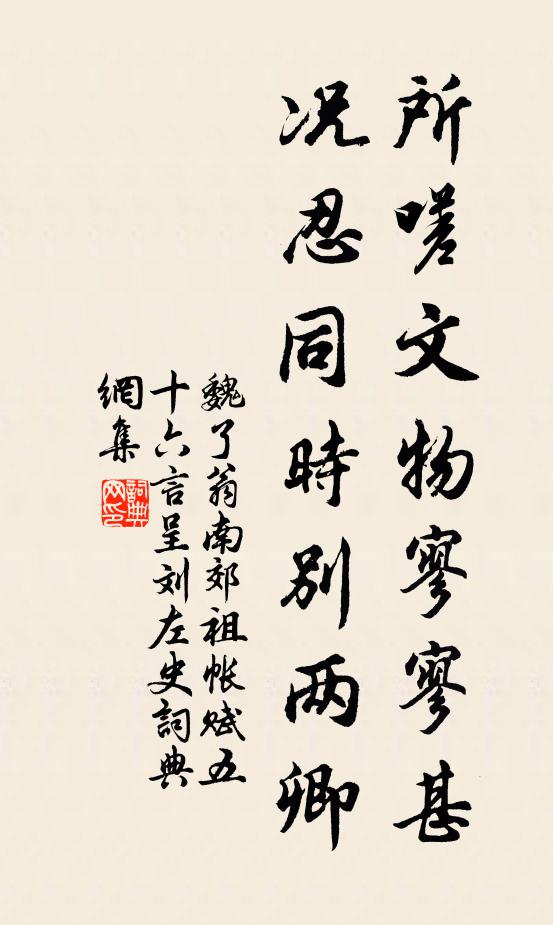 所嗟文物寥寥甚
况忍同時别两卿
魏了翁南郊祖帐赋五
十六言呈刘左史詞典
網集
詞典
网印